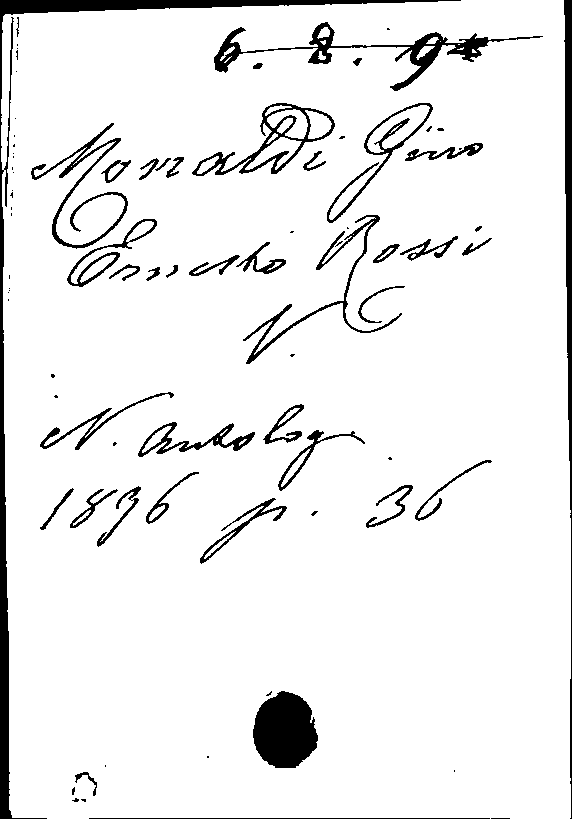 6. 2. 94
Monaldi Gino
Ernesto Rossi
V.
N. Antolog.
1896 p. 36